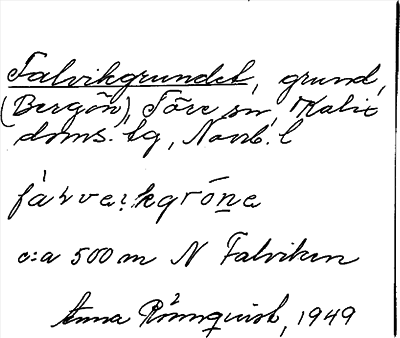 Falvikgrundet, grund,
(Bergön), Töre sn, Kalix
doms. lg, Norrb. l
c:a 500 m N Falviken
Anna Rönnquist, 1949